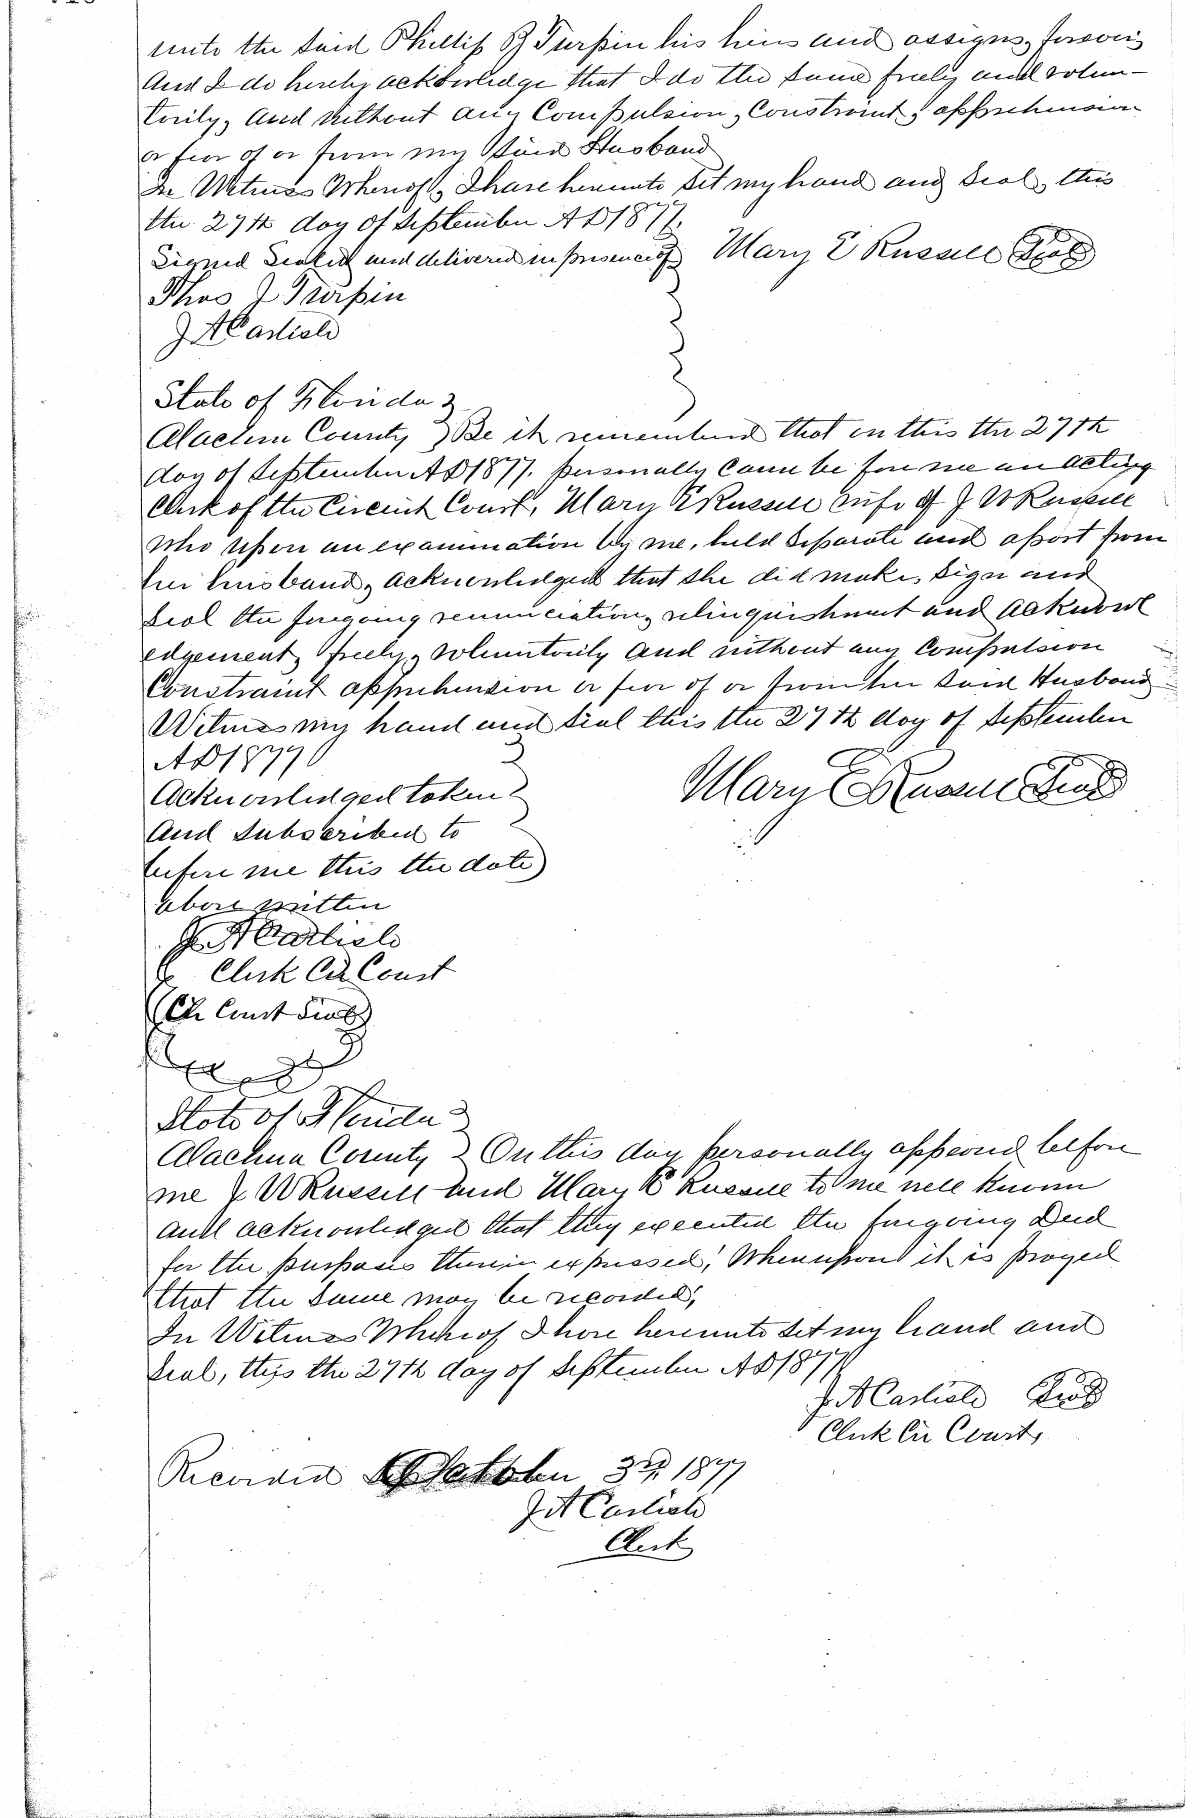 unto the said Phillip B Turpin his heirs and assigns, forever,
And I do hereby acknowledge that I do the same freely and volun-
torily, and without any Compulsion, Constraint, apprehension
or fear of or from my said Husband
In Witness Whereof, I have hereunto set my hand and Seal, this
the 27th day of September AD 1877.
Signed Sealed and delivered in presence of Mary E Russell Seal
Thos J Turpin
J A Carlisle
State of Florida
Alachua County Be it remembered that on this the 27th
day of September AD 1877. personally came before me an acting
Clerk of the Circuit Court, Mary E Russell wife of J W Russell
who upon an examination by me, held separate and apart from
her husband, acknowledged that she did make, sign and
seal the foregoing renunciation, relinquishment and acknowl
edgement, freely, voluntarily and without any compulsion
Constraint apprehension or fear of or from her said Husband
Witness my hand and seal this the 27th day of September
AD 1877
Mary E Russell Seal
Acknowledged taken
And Subscribed to
before me this the date
above written
J A Carlisle
Clerk Cir Court
(Cir Court Seal)
State of Florida
Alachua County On this day personally appeared before
me J W Russell and Mary E Russell to me well known
and acknowledged that they executed the foregoing Deed
for the purposes therein expressed, Whereupon it is prayed
that the same may be recorded,
In Witness Whereof I have hereunto set my hand and
Seal, this the 27th day of September AD 1877
J A Carlisle Seal
Clerk Cir Court,
Recorded October 3rd 1877
J A Carlisle
Clerk